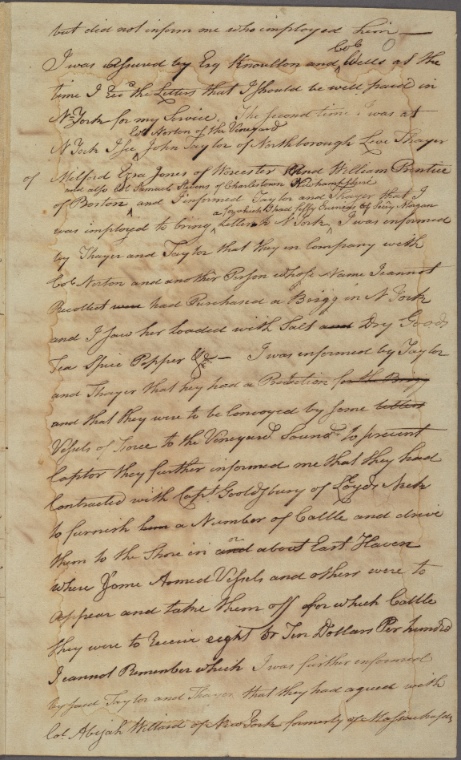 but did not inform me who employed him —
I was assured by Esq Knoulton and Colo Wells at the
time I Recd the Letters that I should be well paid in
N York for my Service The second time I was at
Colo Norton of the Vineyard
N York I see John Taylor of Northborough Levi Thayer
of Melford Ezra Jones of Worcester and William Prentice
and also Samuel Stearns of Charlestown
of Boston and I informed Taylor and Thayer that I
for which I paid fifty Guineas
was imployed to bring Letters to N York I was informed
by Thayer and Taylor that they in Company with
Colo Norton and another Person whose Name I cannot
Recollect had Purchased a Brigg in N York
and I saw her loaded with Salt and Dry Goods
Tea Spice Popper &c — I was informed by Taylor
and Thayer that they had a Protection for the Brigg
and that they were to be Convoyed by some
Vessels of Force to the Vineyard Sound to prevent
Captor they further informed me that they had
Contracted with Capt Gooldsbury of Loyds Neck
to furnish him a Number of Cattle and drive
them to the Shore in and or about East Haven
where some Armed Vessels and others were to
appear and take them off for which Cattle
they were to Receive eight or Ten Dollars Per hundred
I cannot Remember which I was further informed
by said Taylor and Thayer that they had agued with
Col Abijah Willard of New York formerly of Massachusetts